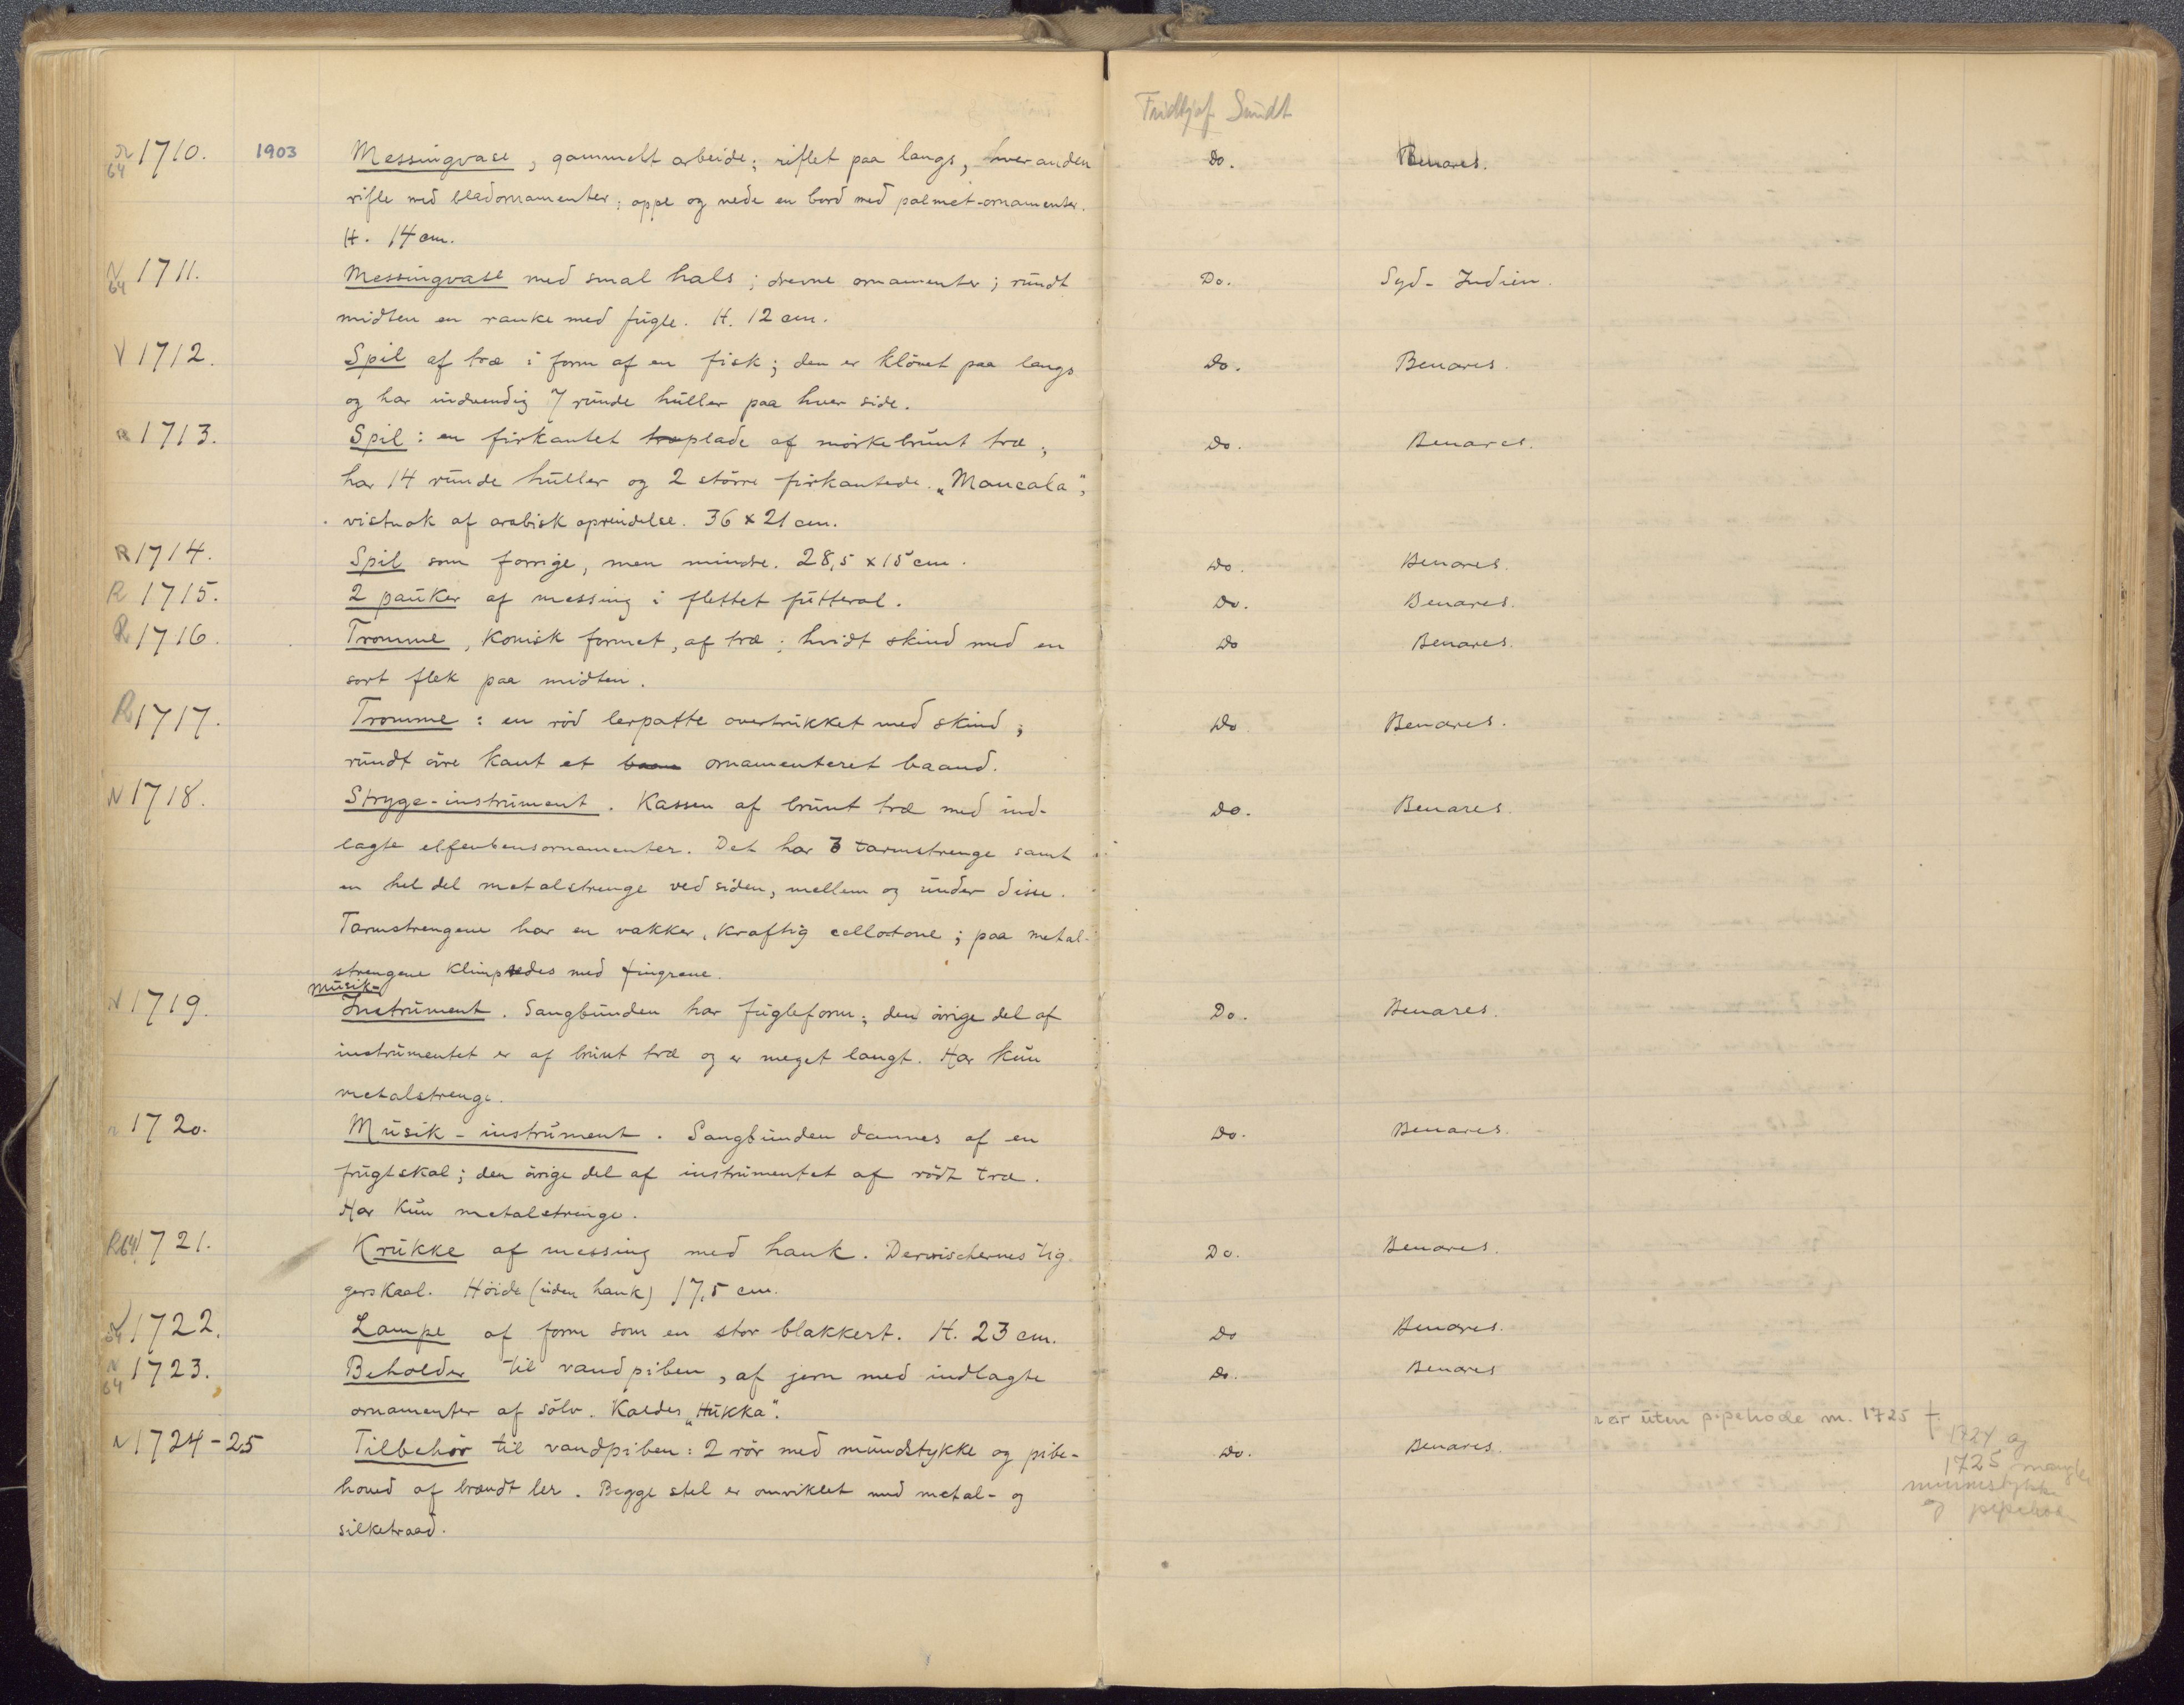 Fridtjof Sundt
N 64 1710. 1903 Messingvase, gammelt arbeide; riflet paa langs, hver anden Do. Benares.
rifle med bladornamenter; oppe og nede en bord med palmet-ornamenter.
H. 14 cm.
N 64 1711. Messingvase med smal hals; drevne ornamenter; rundt Do. Syd-Indien.
midten en ranke med fugle. H. 12 cm.
V 1712. Spil af træ i form af en fisk; den er klövet paa langs Do. Benares.
og har indvendig 7 runde huller paa hver side.
R 1713. Spil: en firkantet træplade af mörkebrunt træ, Do. Benares.
har 14 runde huller og 2 större firkantede. „Mancala“,
vistnok af arabisk oprindelse. 36 x 21 cm.
R 1714. Spil som forrige, men mindre. 28,5 x 15 cm. Do. Benares.
R 1715. 2 pauker af messing i flettet futteral. Do. Benares.
R 1716. Tromme, konisk formet, af træ; hvidt skind med en Do Benares.
sort flek paa midten.
R 1717. Tromme: en röd lerpotte overtrukket med skind; Do Benares.
rundt övre kant et ornamenteret baand.
N 1718. Stryge-instrument. Kassen af brunt træ med ind- Do. Benares.
lagte elfenbensornamenter. Det har 3 tarmstrenge samt
en hel del metalstrenge ved siden, mellem og under disse.
Tarmstrengene har en vakker, kraftig cellotone; paa metal-
strengene klimpredes med fingrene.
Musik-
N 1719. Instrument. Sangbunden har fugleform; den övrige del af Do. Benares.
instrumentet er af brunt træ og er meget langt. Har kun
metalstrenge.
n 1720. Musik-instrument. Sangbunden dannes af en Do. Benares.
frugtskal; den övrige del af instrumentet af rödt træ.
Har kun metalstrenge.
R 64 1721. Krukke af messing med hank. Dervischernes tig- Do. Benares.
gerskaal. Höide (uden hank) 17,5 cm.
64 1722. Lampe af form som en stor blakkert. H. 23 cm. Do Benares.
N 64 1723. Beholder til vandpiben, af jern med indlagte Do. Benares
ornamenter af sölv. Kaldes „Hukka“.
er uten pipehode m. 1725 †
N 1724-25 Tilbehör til vandpiben: 2 rör med mundstykke og pibe- Do. Benares.
hoved af brændt ler. Begge stel er omviklet med metal- og
silketraad.
1724 og
1725 mangler
munnstykke
og pipehode